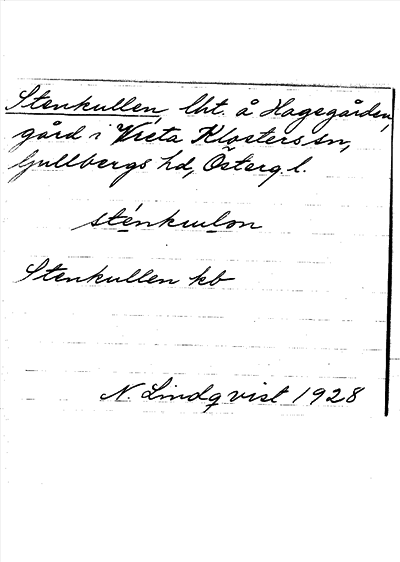 Stenkullen, lht. å Hagegården,
gård i Vreta Klosters sn,
Gullbergs hd, Österg l.
sténkwlon
Stenkullen kb
N. Lindqvist 1928